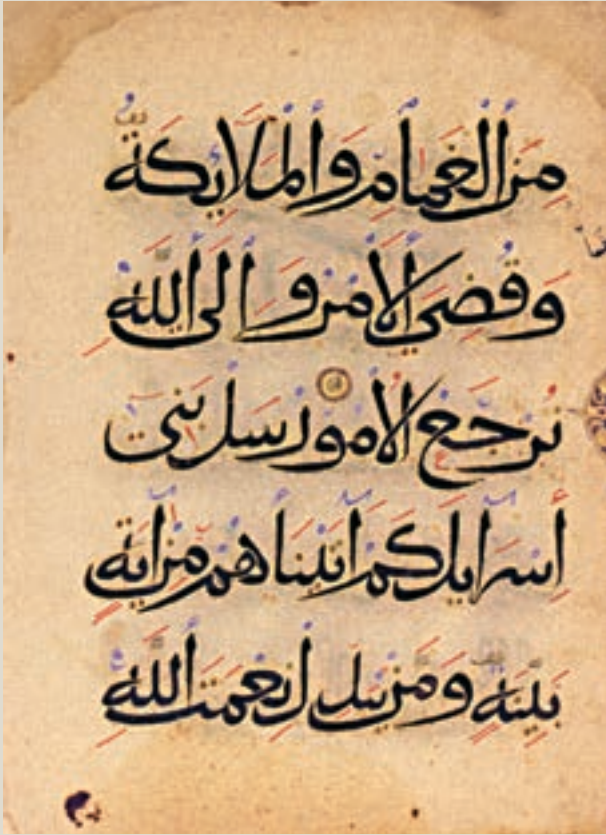 مِنَ الْغَمَامِ وَالْمَلَائِكَةُ
وَقُضِيَ الْأَمْرُ وَإِلَى اللَّهِ
تُرْجَعُ الْأُمُورُ سَلْ بَنِي
إِسْرَائِيلَ كَمْ آتَيْنَاهُمْ مِنْ آيَةٍ
بَيِّنَةٍ وَمَنْ يُبَدِّلْ نِعْمَتَ اللَّهِ